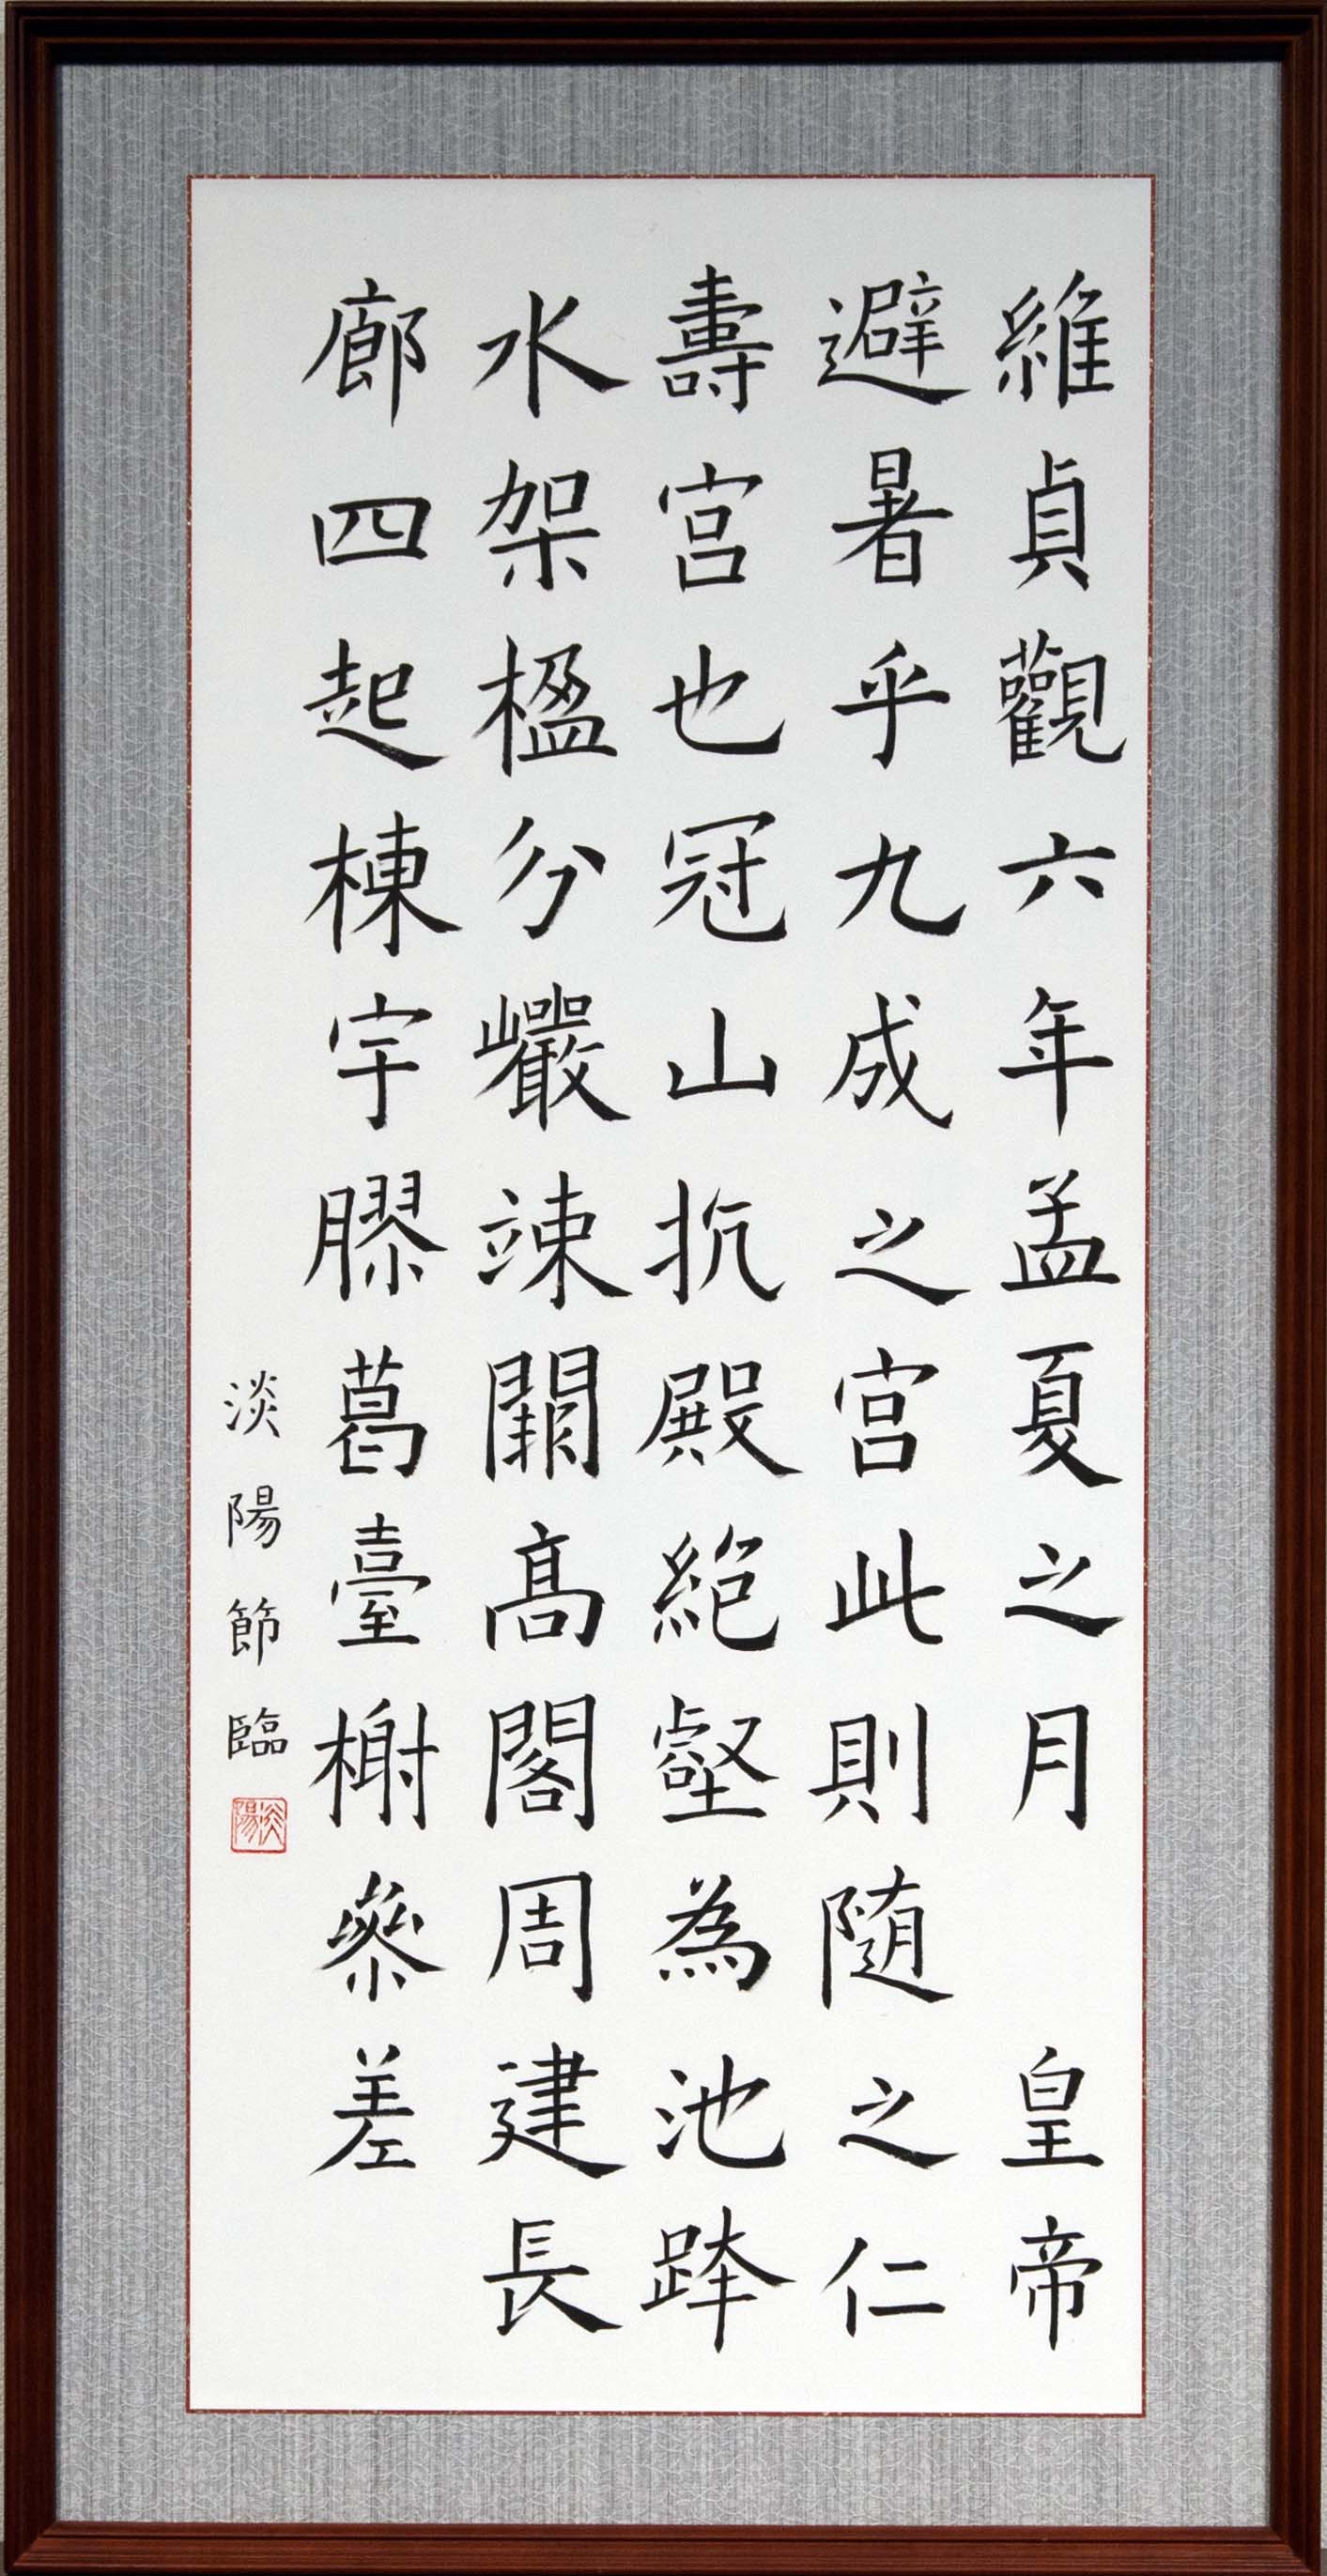 維貞觀六年孟夏之月　皇帝
避暑乎九成之宮此則随之仁
壽宮也冠山抗殿絕壑為池跨
水架楹分巖竦闕高閣周建長
廊四起棟宇膠葛臺榭參差
淡陽節臨
淡陽